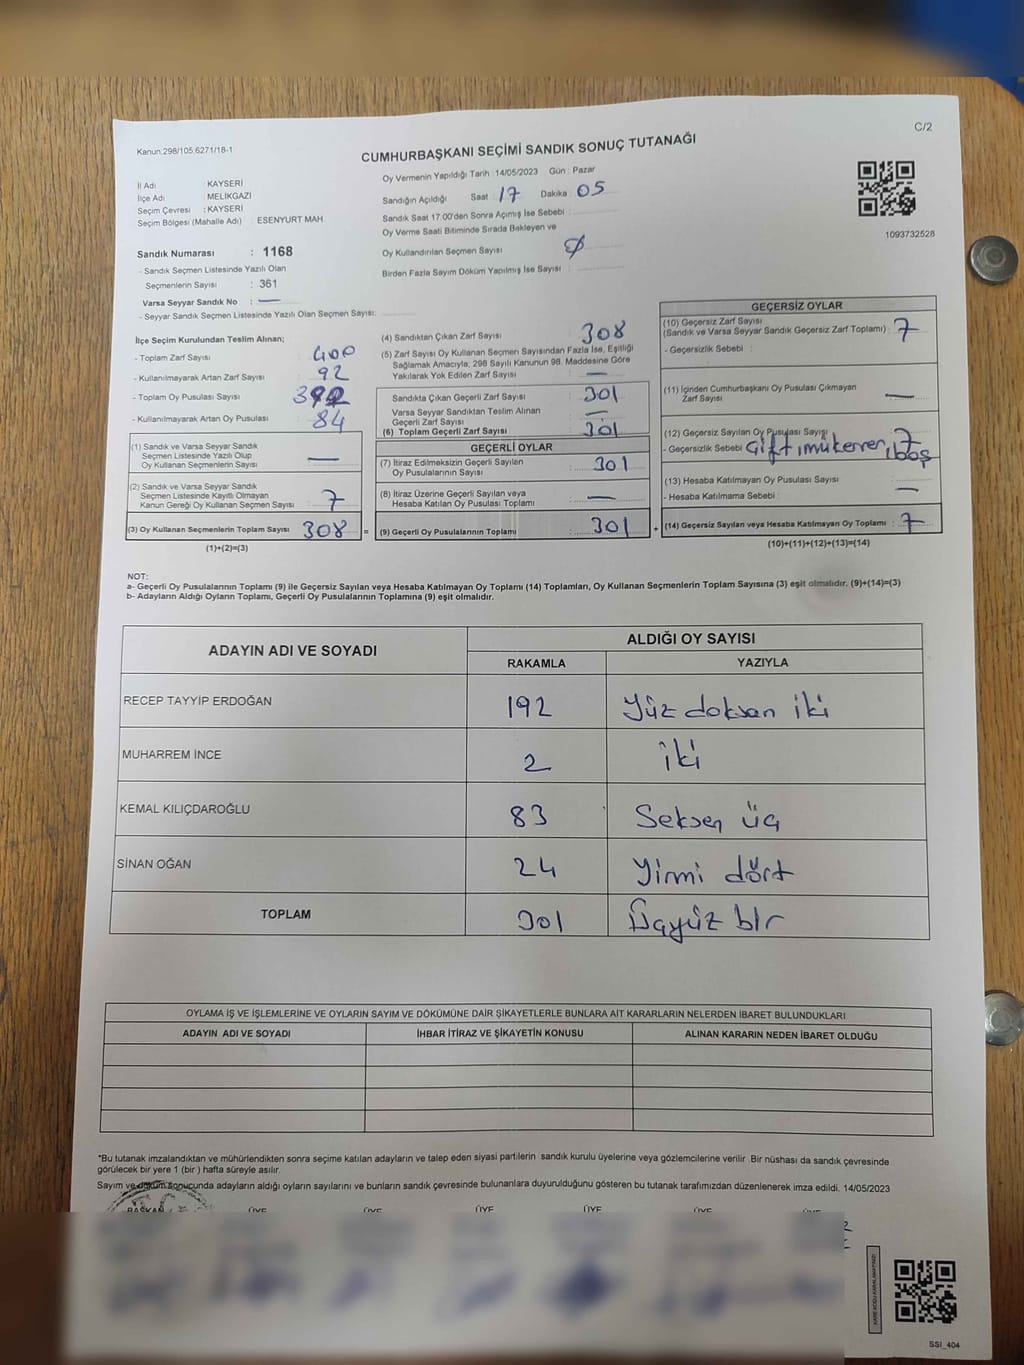 C/2
Kanun:298/105;6271/18-1
CUMHURBAŞKANI SEÇİMİ SANDIK SONUÇ TUTANAĞI
İl Adı : KAYSERİ
İlçe Adı : MELİKGAZİ
Seçim Çevresi : KAYSERİ
Seçim Bölgesi (Mahalle Adı) : ESENYURT MAH
Sandık Numarası : 1168
- Sandık Seçmen Listesinde Yazılı Olan
Seçmenlerin Sayısı : 361
Varsa Seyyar Sandık No : —
- Seyyar Sandık Seçmen Listesinde Yazılı Olan Seçmen Sayısı:
Oy Vermenin Yapıldığı Tarih :14/05/2023 Gün : Pazar
Sandığın Açıldığı Saat : 17 Dakika : 05
Sandık Saat 17:00'den Sonra Açımış İse Sebebi :
Oy Verme Saati Bitiminde Sırada Bekleyen ve
Oy Kullandırılan Seçmen Sayısı : ∅
Birden Fazla Sayım Döküm Yapılmış İse Sayısı :
1093732528
İlçe Seçim Kurulundan Teslim Alınan;
- Toplam Zarf Sayısı : 400
- Kullanılmayarak Artan Zarf Sayısı : 92
- Toplam Oy Pusulası Sayısı 392
- Kullanılmayarak Artan Oy Pusulası : 84
(1) Sandık ve Varsa Seyyar Sandık
Seçmen Listesinde Yazılı Olup
Oy Kullanan Seçmenlerin Sayısı : —
(2) Sandık ve Varsa Seyyar Sandık
Seçmen Listesinde Kayıtlı Olmayan
Kanun Gereği Oy Kullanan Seçmen Sayısı : 7
(3) Oy Kullanan Seçmenlerin Toplam Sayısı : 308 =
(1)+(2)=(3)
(4) Sandıktan Çıkan Zarf Sayısı : 308
(5) Zarf Sayısı Oy Kullanan Seçmen Sayısından Fazla İse, Eşitliği
Sağlamak Amacıyla, 298 Sayılı Kanunun 98. Maddesine Göre
Yakılarak Yok Edilen Zarf Sayısı : —
Sandıkta Çıkan Geçerli Zarf Sayısı : 301
Varsa Seyyar Sandıktan Teslim Alınan
Geçerli Zarf Sayısı : —
(6) Toplam Geçerli Zarf Sayısı : 301
GEÇERLİ OYLAR
(7) İtiraz Edilmeksizin Geçerli Sayılan
Oy Pusulalarının Sayısı : 301
(8) İtiraz Üzerine Geçerli Sayılan veya
Hesaba Katılan Oy Pusulası Toplamı : —
(9) Geçerli Oy Pusulalarının Toplamı : 301 +
GEÇERSİZ OYLAR
(10) Geçersiz Zarf Sayısı
(Sandık ve Varsa Seyyar Sandık Geçersiz Zarf Toplamı) : 7
- Geçersizlik Sebebi :
(11) İçinden Cumhurbaşkanı Oy Pusulası Çıkmayan
Zarf Sayısı : —
(12) Geçersiz Sayılan Oy Pusulası Sayısı : 7
- Geçersizlik Sebebi Çift, mükerrer, boş
(13) Hesaba Katılmayan Oy Pusulası Sayısı : —
- Hesaba Katılmama Sebebi :
(14) Geçersiz Sayılan veya Hesaba Katılmayan Oy Toplamı : 7
(10)+(11)+(12)+(13)=(14)
NOT:
a- Geçerli Oy Pusulalarının Toplamı (9) ile Geçersiz Sayılan veya Hesaba Katılmayan Oy Toplamı (14) Toplamları, Oy Kullanan Seçmenlerin Toplam Sayısına (3) eşit olmalıdır. (9)+(14)=(3)
b- Adayların Aldığı Oyların Toplamı, Geçerli Oy Pusulalarının Toplamına (9) eşit olmalıdır.
ADAYIN ADI VE SOYADI ALDIĞI OY SAYISI
RAKAMLA YAZIYLA
RECEP TAYYİP ERDOĞAN 192 Yüz doksan iki
MUHARREM İNCE 2 iki
KEMAL KILIÇDAROĞLU 83 Seksen üç
SİNAN OĞAN 24 Yirmi dört
TOPLAM 301 Üçyüz bir
OYLAMA İŞ VE İŞLEMLERİNE VE OYLARIN SAYIM VE DÖKÜMÜNE DAİR ŞİKAYETLERLE BUNLARA AİT KARARLARIN NELERDEN İBARET BULUNDUKLARI
ADAYIN ADI VE SOYADI İHBAR İTİRAZ VE ŞİKAYETİN KONUSU ALINAN KARARIN NEDEN İBARET OLDUĞU
*Bu tutanak imzalandıktan ve mühürlendikten sonra seçime katılan adayların ve talep eden siyasi partilerin sandık kurulu üyelerine veya gözlemcilerine verilir. Bir nüshası da sandık çevresinde
görülecek bir yere 1 (bir ) hafta süreyle asılır.
Sayım ve döküm sonucunda adayların aldığı oyların sayılarını ve bunların sandık çevresinde bulunanlara duyurulduğunu gösteren bu tutanak tarafımızdan düzenlenerek imza edildi. 14/05/2023
BAŞKAN ÜYE ÜYE ÜYE ÜYE ÜYE ÜYE
SSI_404